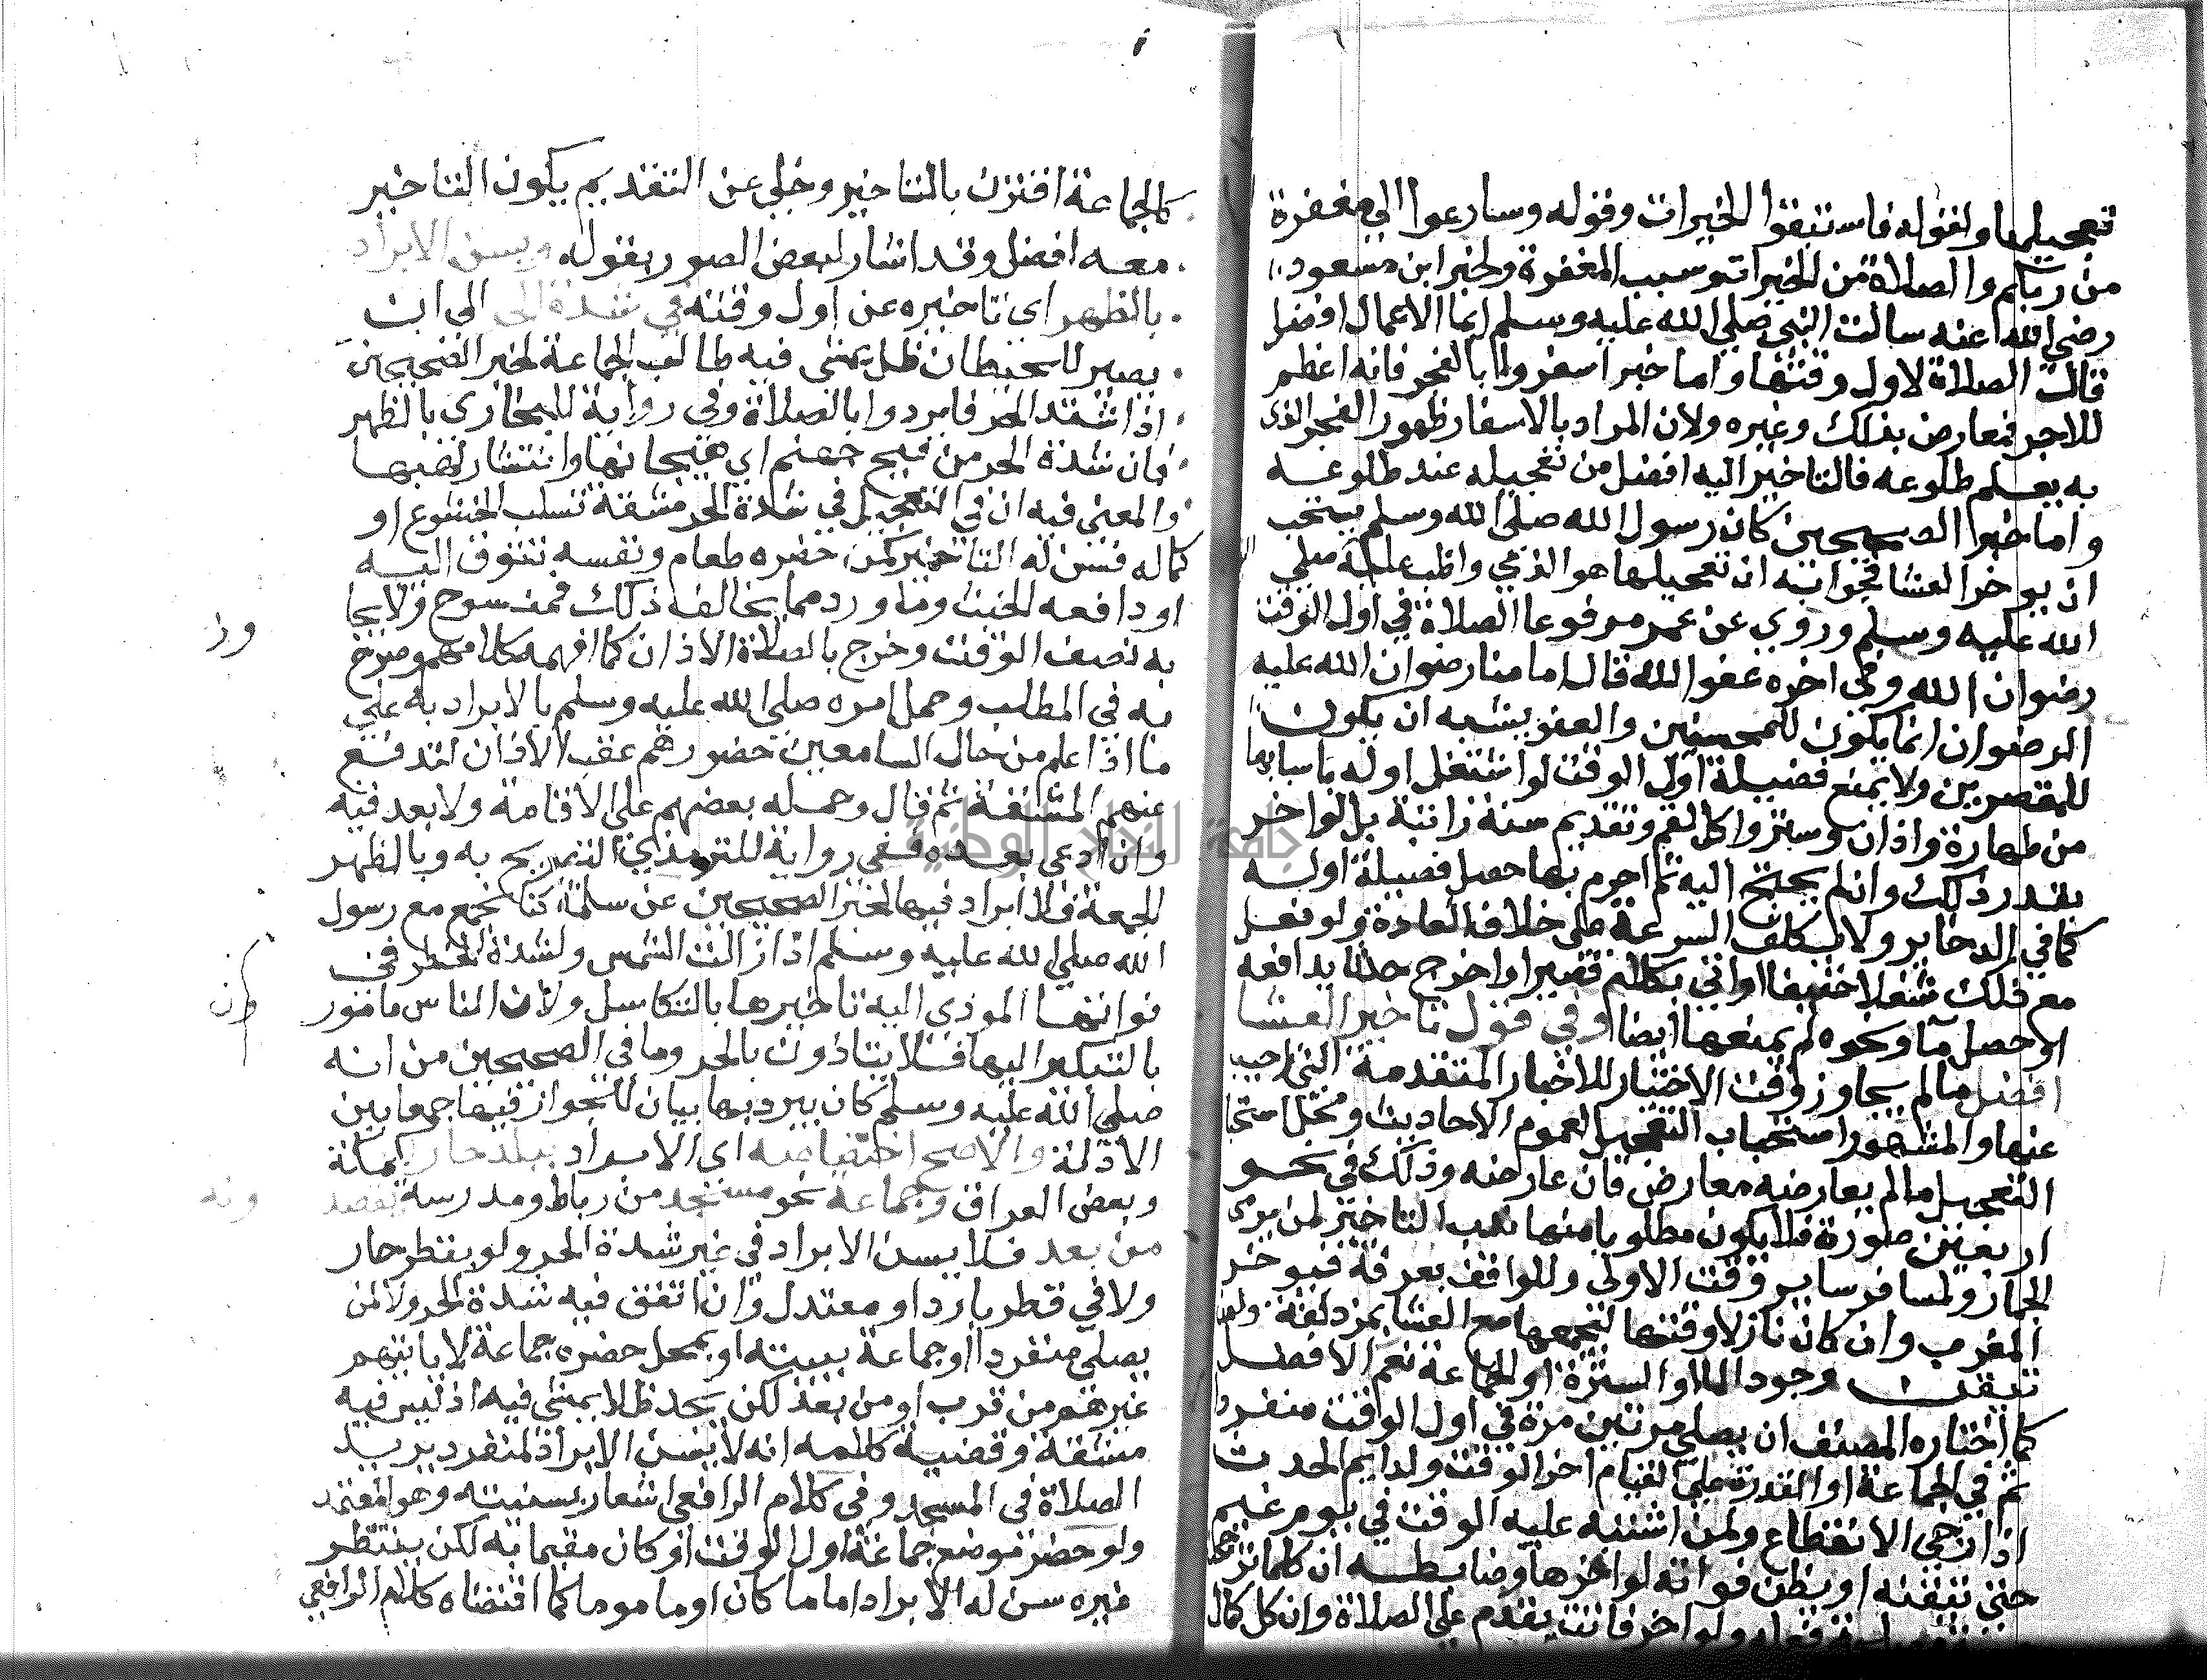 تعجيلها ولقوله فاستبقوا الخيرات وقوله وسارعوا الى مغفرة
من ربكم والصلاة من الخيرات وسبب المغفرة ولخبر ابن مسعود
رضي الله عنه سالت النبي صلى الله عليه وسلم ايما الاعمال افضل
قال الصلاة لاول وقتها واما خبر اسفروا بالفجر فانه اعظم
للاجر فمعارض بذلك وغيره ولان المراد بالاسفار ظهور الفجر الذي
به يعلم طلوعه فالتاخير اليه افضل من تعجيله عند طلوعه
واما خبر الصحيحين كان رسول الله صلى الله وسلم يستحب
ان يوخر العشا فجوابه ان تعجيلها هو الذي واظب عليه صلى
الله عليه وسلم وروي عن عمر مرفوعا الصلاة في اول الوقت
رضوان الله وفي اخره عفو الله قال امامنا رضوان الله عليه
الرضوان انما يكون للمحسنين والعفو يشبه ان يكون
للمقصرين ولا يمنع فضيلة اول الوقت لو اشتغل اوله باسبابها
من طهارة واذان وستر واكل لقم وتقديم سنة راتبة بل لو اخر
بقدر ذلك وان لم يحتج اليه ثم احرم بها حصل فضيلة اوله
كما في الدخاير ولا يكلف السرعة على خلاف العادة ولو فعل
مع ذلك شغلا خفيفا او اتي بكلام قصير او اخرج حدثا يدافعه
او حصل ما ونحوه لم يمنعها ايضا وفي قول تاخير العشا
افضل ما لم يجاوز وقت الاختيار للاخبار المتقدمة التي اجيب
عنها والمشهور استحباب التعجيل لعموم الاحاديث ومحل استحباب
التعجيل ما لم يعارضه معارض فان عارضه وذلك في نحو
اربعين صورة فلا يكون مطلوبا منها ندب التاخير لمن يرمي
الجمار ولمسافر ساير وقت الاولى وللواقف بعرفة فيوخر
المغرب وان كان نازلا وقتها لتجمعها مع العشا بمزدلفة ولمن
تيقن وجود الما او السترة او الجماعة نعم الافضل
كما اختاره المصنف ان يصلي مرتين مرة في اول الوقت منفردا
ثم في الجماعة او القدرة على القيام اخر الوقت ولدايم الحدث
اذا رجي الانقطاع ولمن اشتبه عليه الوقت في يوم غيم
حتي تيقنه او يظن فواته لو اخرها وضابطه ان كلما ترجحت
فعله ولو اخر فاتت يقدم على الصلاة وان كل كمال
كالجماعة اقترن بالتاخير وخلي عن التقديم يكون التاخير
معه افضل وقد اشار لبعض الصور بقوله ويسن الابراد
بالظهر اي تاخيره عن اول وقته في شدة الحر الى ان
يصير للحيطان ظل يمشي فيه طالب الجماعة لخبر الصحيحين
اذا اشتد الحر فابردوا بالصلاة وفي رواية للبخاري بالظهر
فان شدة الحر من فيح جهنم اي هيجانها وانتشار لهبها
والمعني فيه ان في التعجيل في شدة الحر مشقة تسلب الخشوع او
كماله فسن له التاخير كمن حضره طعام ونفسه تتوق اليه
او دافعه الخبث وما ورد مما يخالف ذلك فمنسوخ ولا يجا
وز
به نصف الوقت وخرج بالصلاة الاذان كما افهمه كلامهم وصرح
به في المطلب وحمل امره صلى الله عليه وسلم بالابراد به على
ما اذا علم من حال السامعين حضورهم عقب الاذان لتندفع
عنهم المشقة ثم قال وحمله بعضهم على الاقامة ولا بعد فيه
وان ادعى بعده ففي رواية للترمذي التصريح به وبالظهر
الجمعة فلا ابراد فيها لخبر الصحيحين عن سلمة كنا نجمع مع رسول
الله صلى الله عليه وسلم اذا زالت الشمس ولشدة الخطر في
فواتها الموذي اليه تاخيرها بالتكاسل ولان الناس مامور
ون
بالتبكير اليها فلا يتاذون بالحر وما في الصحيحين من انه
صلى الله عليه وسلم كان يبرد بها بيان للجواز فيها جمعا بين
الادلة والاصح اختصاصه اي الابراد ببلد حار كمكة
وبعض العراق وجماعة نحو مسجد من رباط ومدرسة يقصد
ونه
من بعد فلا يسن الابراد في غير شدة الحر ولو بقطر حار
ولا في قطر بارد او معتدل وان اتفق فيه شدة الحر ولا لمن
يصلي منفردا او جماعة ببيته او بمحل حضره جماعة لا ياتيهم
غيرهم من قرب او من بعد لكن يجد ظلا يمشي فيه اذ ليس فيه
مشقة وقضية كلامه انه لا يسن الابراد لمنفرد يريد
الصلاة في المسجد وفي كلام الرافعي اشعار بسنيته وهو المعتمد
ولو حضر موضع جماعة اول الوقت او كان مقيما به لكن ينتظر
غيره سن له الابراد اماما كان او ماموما كما اقتضاه كلام الرافعي
جامعة النجاح الوطنية